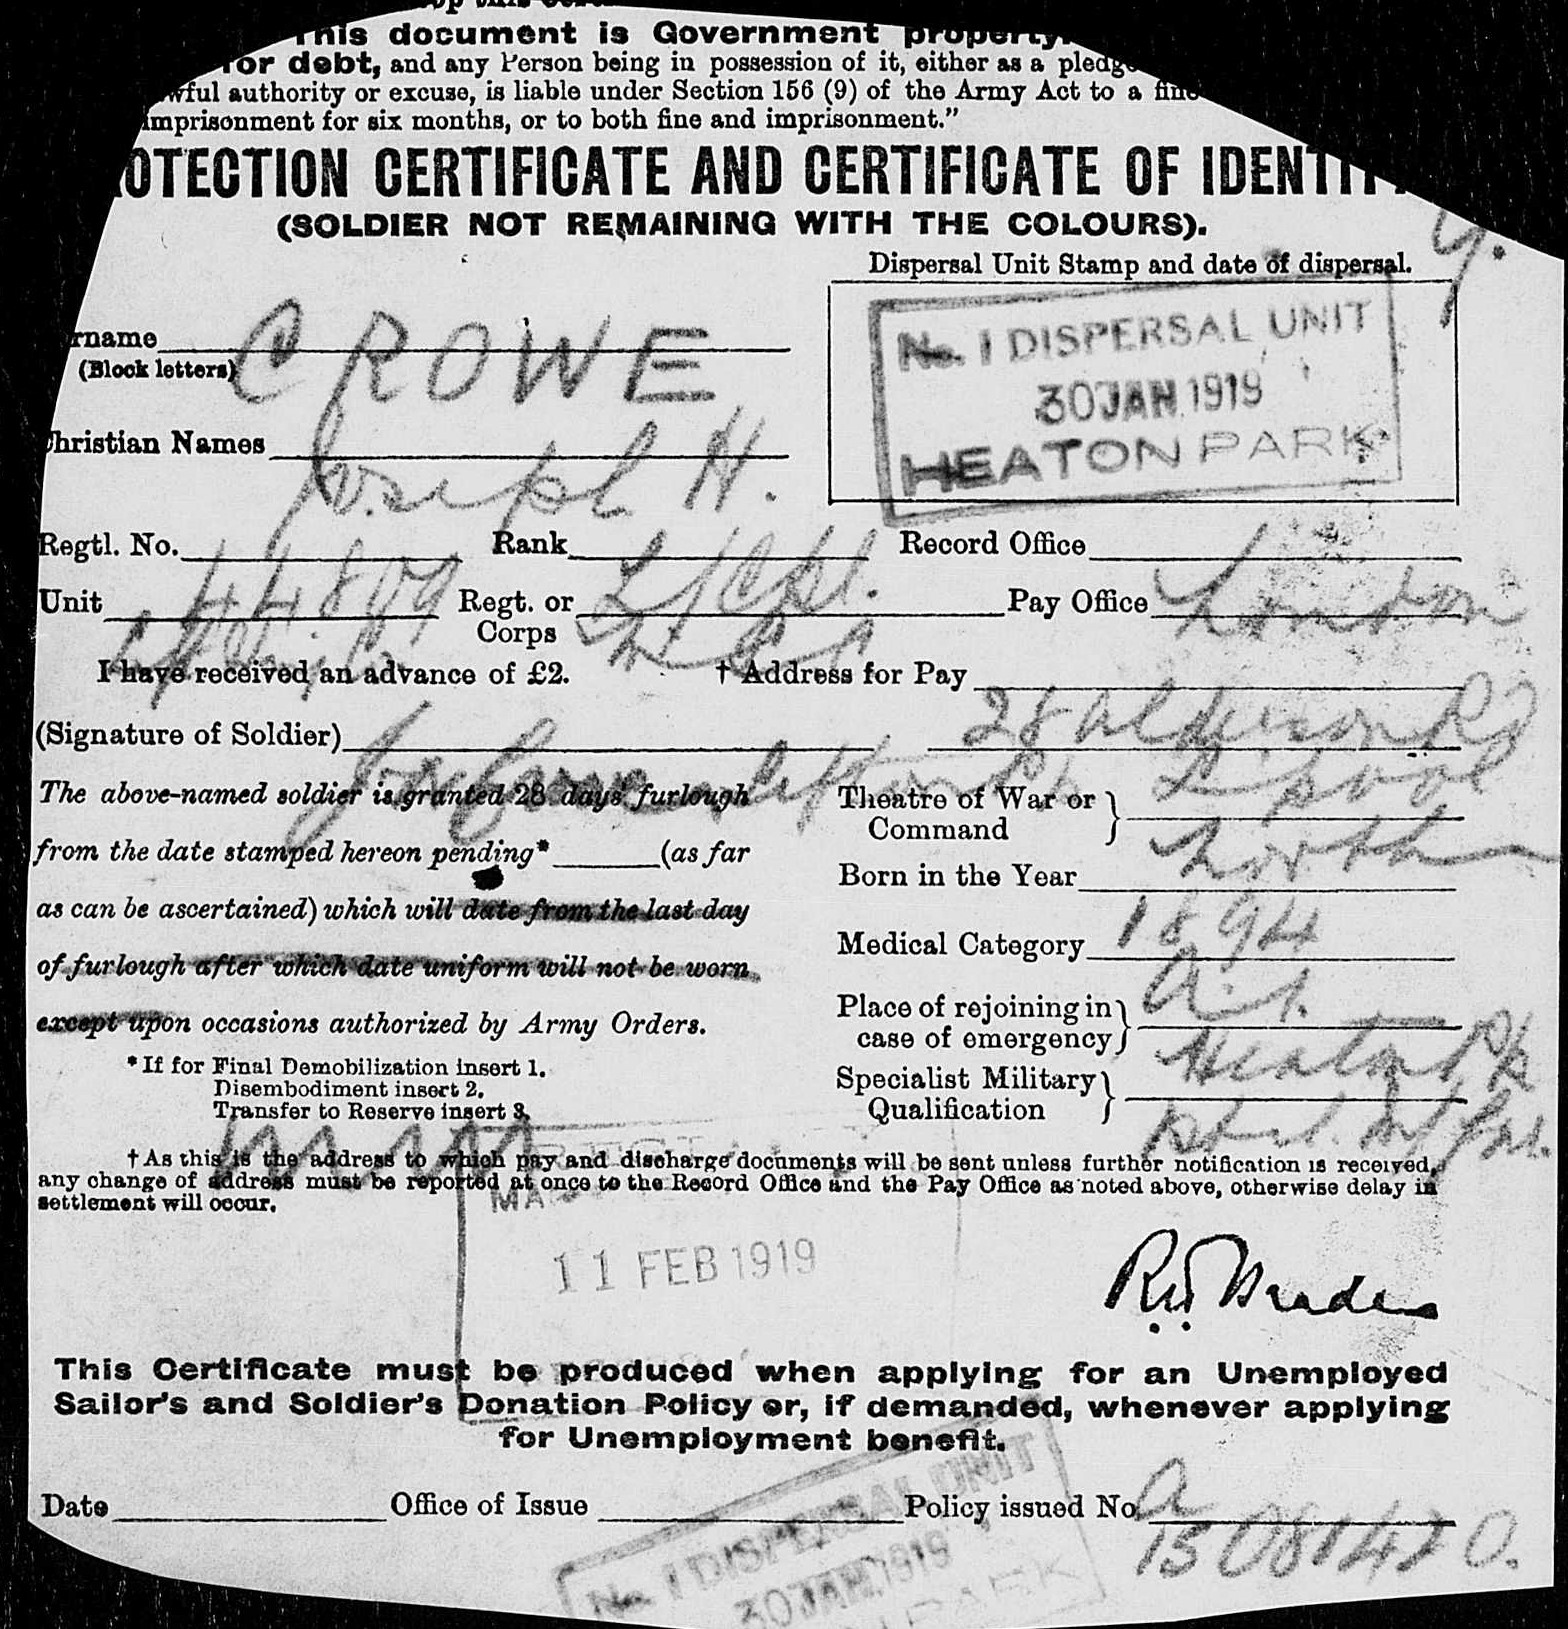 This document is Government property.
for debt, and any Person being in possession of it, either as a pledge
wful authority or excuse, is liable under Section 156 (9) of the Army Act to a fine
imprisonment for six months, or to both fine and imprisonment."
OTECTION CERTIFICATE AND CERTIFICATE OF IDENTITY
(SOLDIER NOT REMAINING WITH THE COLOURS).
Dispersal Unit Stamp and date of dispersal.
No. 1 DISPERSAL UNIT
30 JAN 1919
HEATON PARK
rname CROWE
(Block letters)
Christian Names Joseph H.
Regtl. No. 44809 Rank L/Cpl. Record Office London
Unit Regt. or Corps M G C Pay Office
I have received an advance of £2. † Address for Pay 28 Alderson Rd
(Signature of Soldier) L'pool
The above-named soldier is granted 28 days' furlough
from the date stamped hereon pending* (as far
as can be ascertained) which will date from the last day
of furlough after which date uniform will not be worn
except upon occasions authorized by Army Orders.
Theatre of War or Command Northern
Born in the Year 1894
Medical Category A.1.
Place of rejoining in case of emergency Heaton Pk
Specialist Military Qualification
*If for Final Demobilization insert 1.
Disembodiment insert 2.
Transfer to Reserve insert 3.
† As this is the address to which pay and discharge documents will be sent unless further notification is received,
any change of address must be reported at once to the Record Office and the Pay Office as noted above, otherwise delay in
settlement will occur.
11 FEB 1919
This Certificate must be produced when applying for an Unemployed
Sailor's and Soldier's Donation Policy or, if demanded, whenever applying
for Unemployment benefit.
Date Office of Issue Policy issued No. A
13 081420.
No. 1 DISPERSAL UNIT
30 JAN 1919
PARK